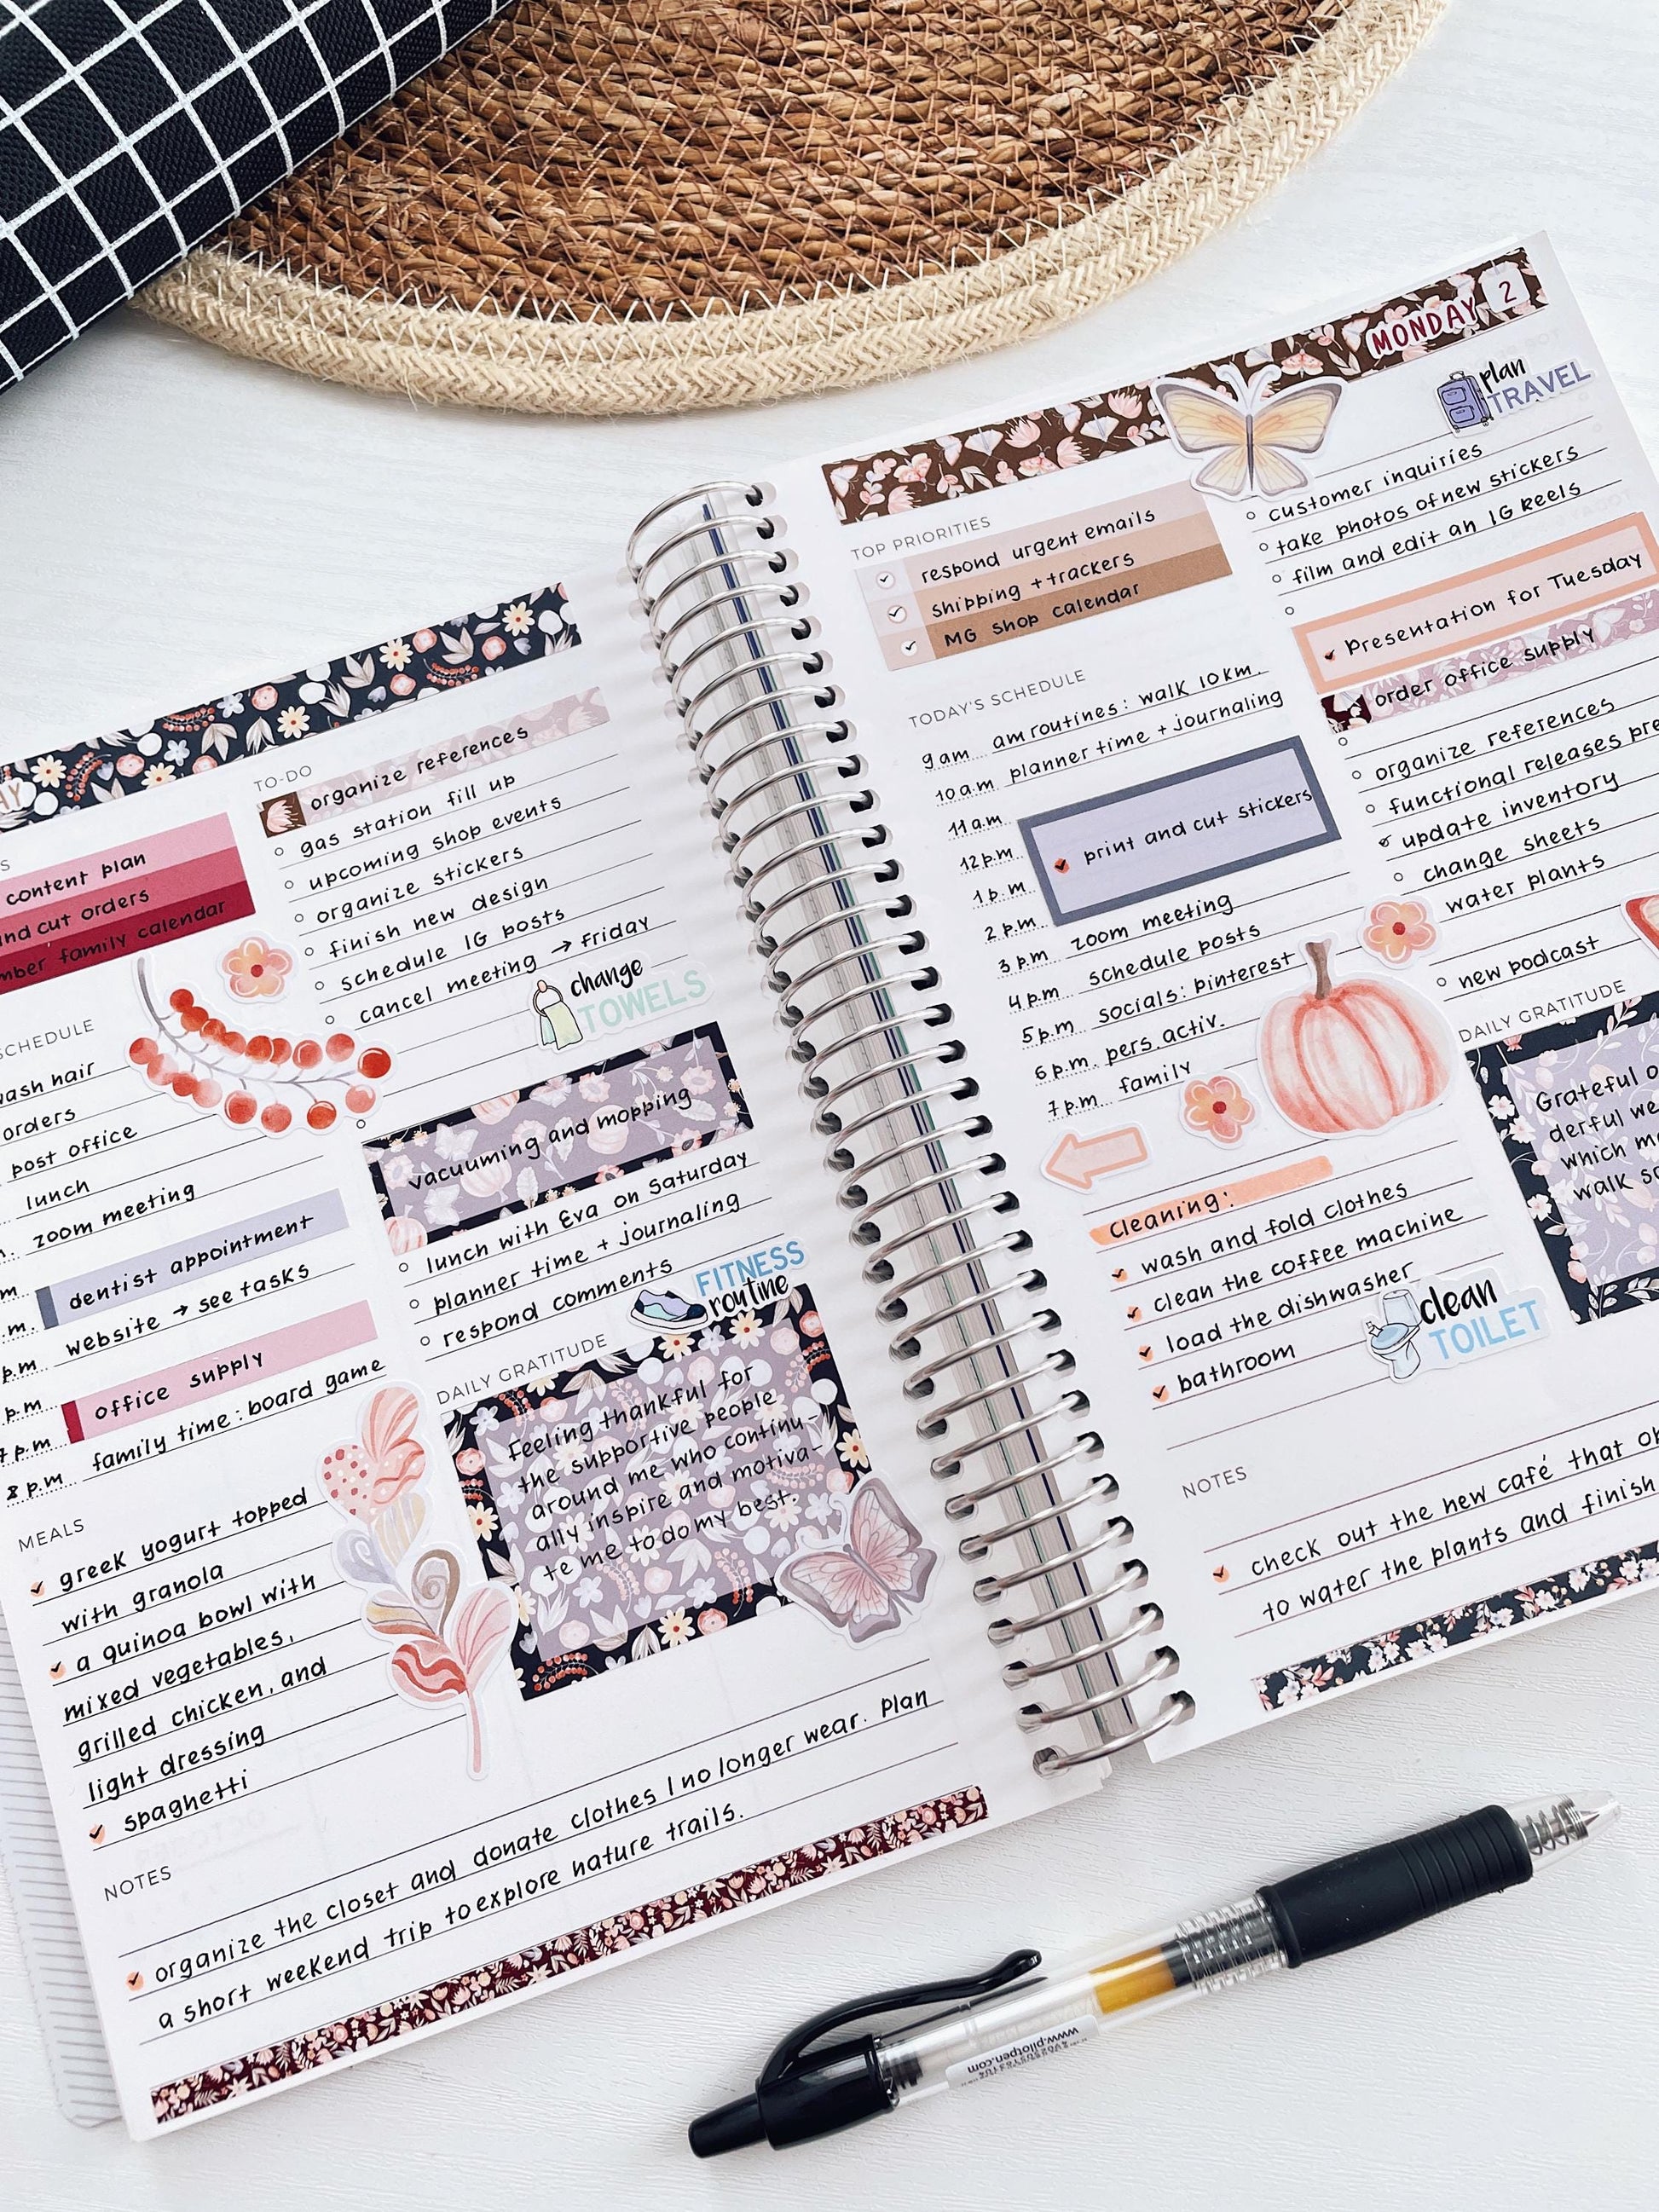 content plan
and cut orders
family calendar
TO-DO
organize references
gas station fill up
upcoming shop events
organize stickers
finish new design
schedule IG posts
cancel meeting → Friday
change
TOWELS
SCHEDULE
wash hair
orders
post office
lunch
zoom meeting
dentist appointment
website → see tasks
office supply
8 p.m. family time: board game
vacuuming and mopping
lunch with Eva on Saturday
planner time + journaling
respond comments
FITNESS
routine
DAILY GRATITUDE
Feeling thankful for
the supportive people
around me who continu-
ally inspire and motiva-
te me to do my best.
MEALS
greek yogurt topped
with granola
a quinoa bowl with
mixed vegetables,
grilled chicken, and
light dressing
spaghetti
NOTES
organize the closet and donate clothes I no longer wear. Plan
a short weekend trip to explore nature trails.
MONDAY 2
TOP PRIORITIES
respond urgent emails
shipping + trackers
MG shop calendar
TODAY'S SCHEDULE
9 am am routines: walk 10km.
10 a.m planner time + journaling
11 a.m.
12 p.m. print and cut stickers
1 p.m.
2 p.m. zoom meeting
3 p.m. schedule posts
4 p.m socials: pinterest
5 p.m pers. activ.
6 p.m. family
7 p.m.
Cleaning:
wash and fold clothes
clean the coffee machine
load the dishwasher
bathroom
clean
TOILET
plan
TRAVEL
customer inquiries
take photos of new stickers
film and edit an IG Reels
Presentation for Tuesday
order office supply
organize references
functional releases
update inventory
change sheets
water plants
new podcast
DAILY GRATITUDE
Grateful
derful
which
walk
NOTES
check out the new café that
to water the plants and finish
www.pilotpen.com